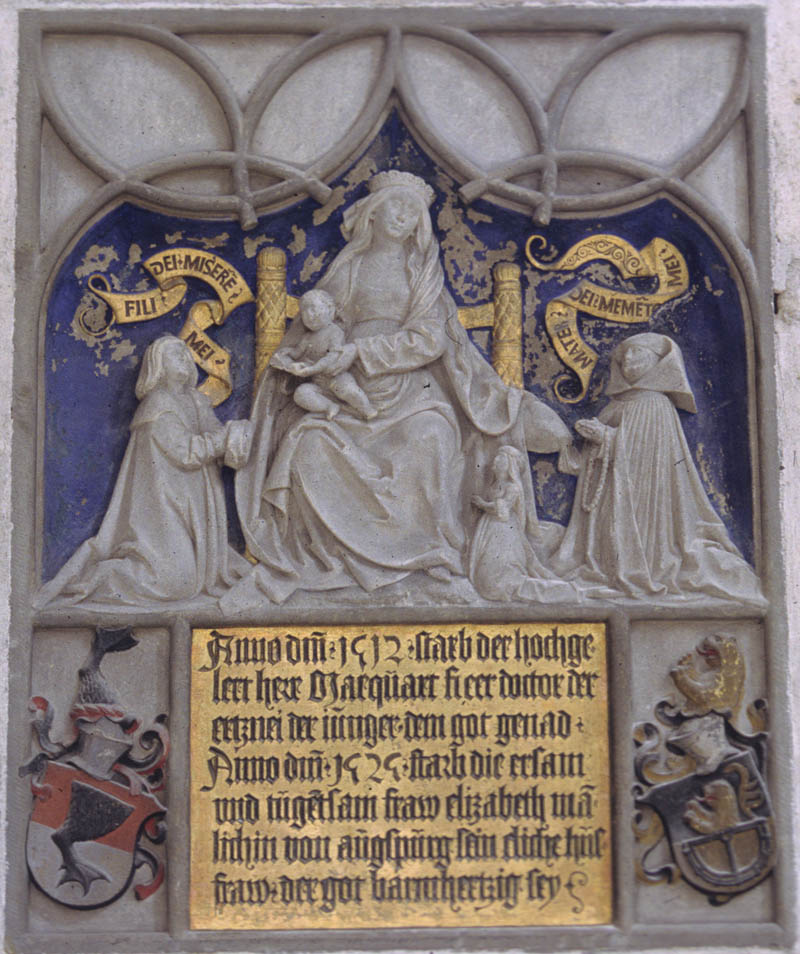 FILI DEI · MISERE MEI
MATE DEI · MEMĒTO MEI
Anno dm̄ · 1512 · starb der hochge
lert herr Marquart ficer doctor der
ertznei der iünger · dem got genad ·
Anno dm̄ · 1525 · starb die ersam
vnd tügentsam fraw elizabeth mä
lichin von aügspürg sein eliche hüs
fraw · der got barmhertzig · sey